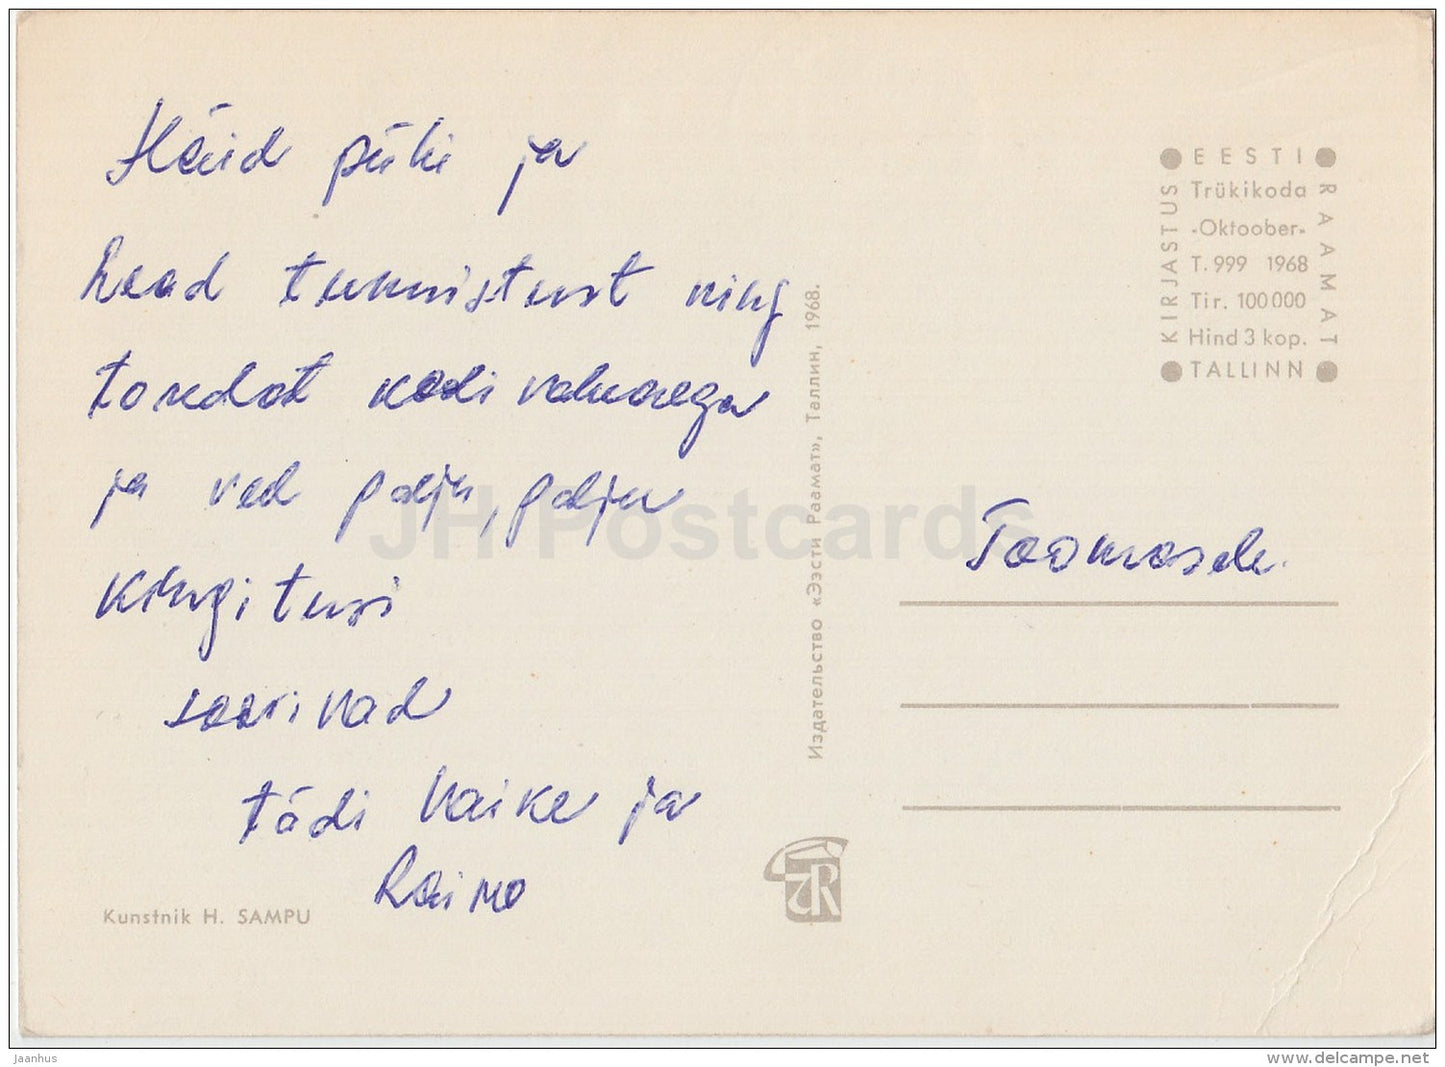 Häid pühi ja
head tunnistust ning
toredat koolivaheaega
ja veel palju, palju
kingitusi
soovivad
tädi Vaike ja
Raivo
Kunstnik H. SAMPU
Издательство «Ээсти Раамат», Таллин, 1968.
EESTI
RAAMAT
KIRJASTUS
Trükikoda
-Oktoober-
T. 999 1968
Tir. 100 000
Hind 3 kop.
TALLINN
Toomasele.
JH Postcards
jaanhus
www.delcampe.net